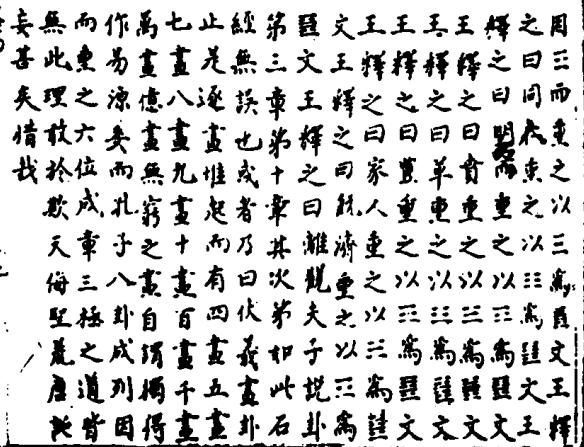 因☲而重之以☰爲䷌文王釋
之曰同人重之以☷爲䷣文王
釋之曰明夷重之以☶爲䷕文
王釋之曰賁重之以☱爲䷰文
王釋之曰革重之以☳爲䷶文
王釋之曰豐重之以☴爲䷤文
王釋之曰家人重之以☵爲䷾
文王釋之曰既濟重之以☲爲
䷝文王釋之曰離觀夫子說卦
第三章第十章其次第如此石
經無誤也或者乃曰伏羲畫卦
止是逐畫堆起而有四畫五畫
七畫八畫九畫十畫百畫千畫
萬畫億畫無窮之畫自謂獨得
作易源妄而孔子八卦成列因
而重之六位成章三極之道皆
無此理敢於欺天侮聖荒唐誕
妄甚矣惜哉